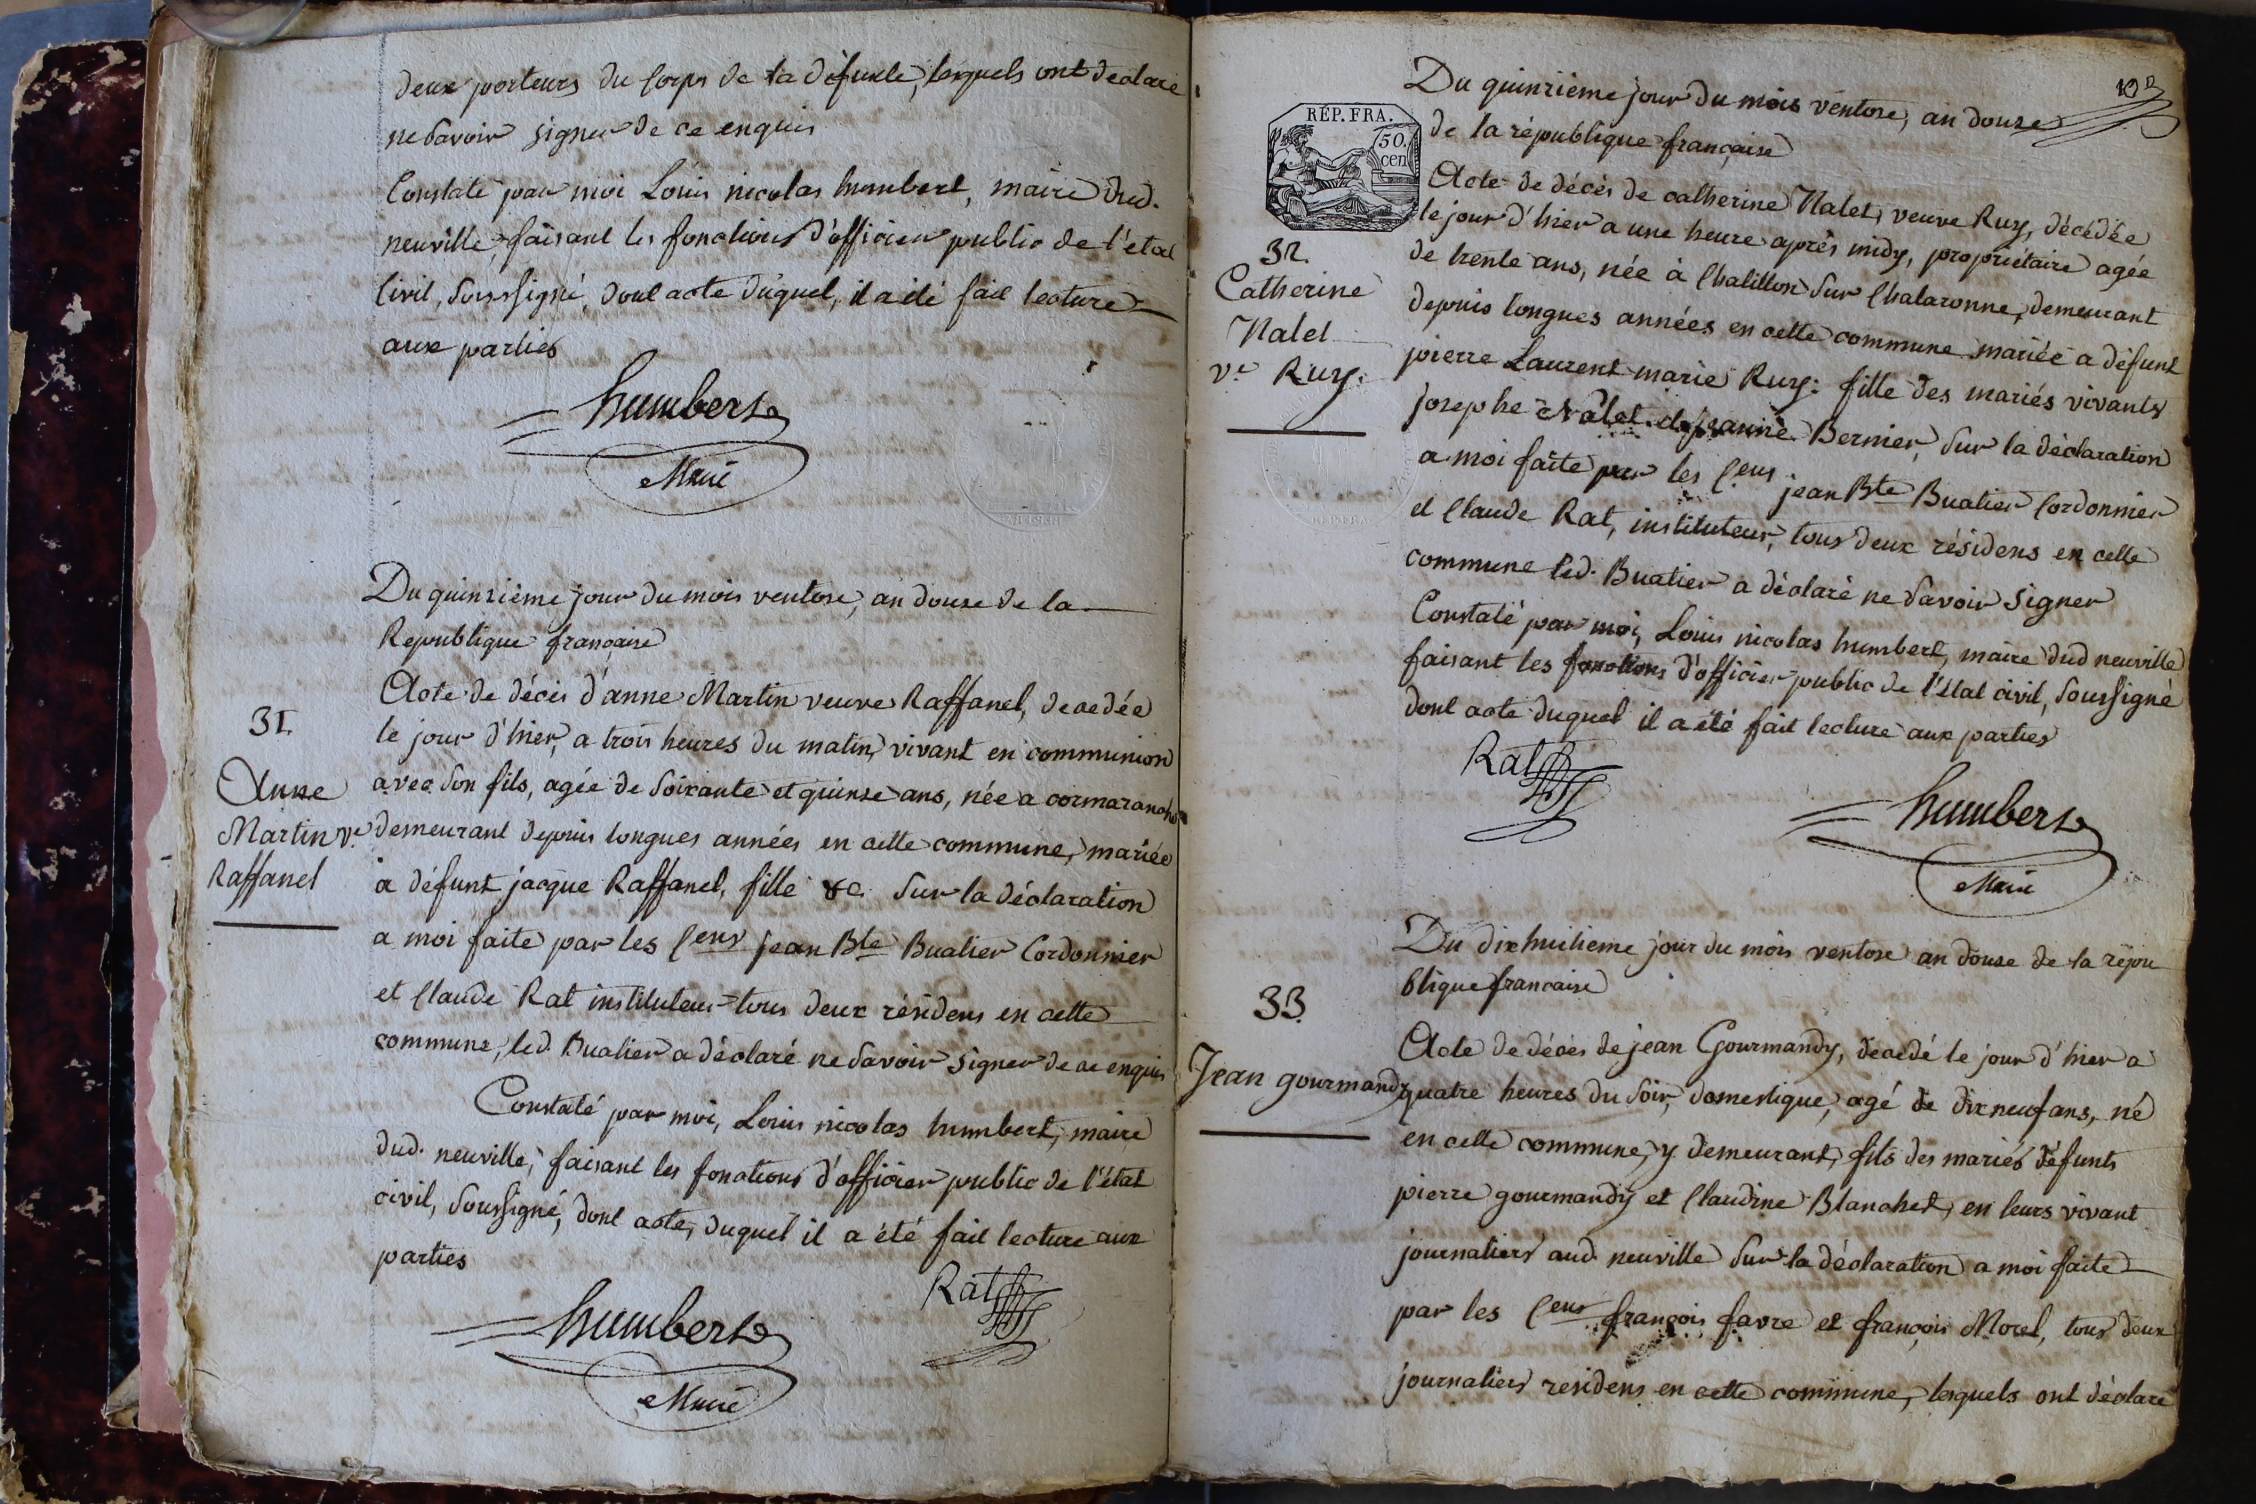 deux porteurs du corps de la défunte, lesquels ont déclaré
ne savoir signer de ce enquis
Constaté par moi Louis nicolas humbert, maire dud.
neuville, faisant les fonctions d'officier public de l'état
Civil, soussigné, dont acte duquel, il a été fait lecture
aux parties
humbert
Maire
Du quinzième jour du mois ventose, an douze de la
Republique française
31.
Anne
Martin ve.
Raffanel
Acte de décès d'anne Martin veuve Raffanel, decedée
le jour d'hier, a trois heures du matin, vivant en communion
avec son fils, agée de soixante et quinze ans, née a cormaranche
demeurant depuis longues années en cette commune, mariée
a défunt jacque Raffanel, fille &c. sur la déclaration
a moi faite par les Cens jean Bte Buatier Cordonnier
et Claude Rat instituteur tous deux résidens en cette
commune, led. Buatier a déclaré ne savoir signer de ce enquis
Constaté par moi, Louis nicolas humbert, maire
dud. neuville, faisant les fonctions d'officier public de l'état
civil, soussigné, dont acte, duquel il a été fait lecture aux
parties
Rat
humbert
Maire
Du quinzième jour du mois ventose, an douze
de la république française
RÉP. FRA.
50.
cen
32.
Catherine
Nalet
ve. Ruy.
Acte de décès de catherine Nalet, veuve Ruy, décédée
le jour d'hier a une heure après midy, propriétaire agée
de trente ans, née à Chatillon sur Chalaronne, demeurant
depuis longues années en cette commune mariée a défunt
pierre Laurent marie Ruy: fille des mariés vivants
josephe Nalet et jeanne Bernier, sur la déclaration
a moi faite par les Cens jean Bte Buatier Cordonnier
et Claude Rat, instituteur, tous deux résidens en cette
commune led. Buatier a déclaré ne savoir signer
Constaté par moi, Louis nicolas humbert, maire dud neuville
faisant les fonctions d'officier public de l'état civil, soussigné
dont acte duquel il a été fait lecture aux parties
Rat
humbert
Maire
Du dixhuitieme jour du mois ventose an douze de la répu
blique francaise
33.
Jean gourmandy
Acte de décès de jean Gourmandy, decedé le jour d'hier a
quatre heures du soir, domestique, agé de dixneuf ans, né
en cette commune, y demeurant, fils des mariés défunts
pierre gourmandy et Claudine Blanchet, en leurs vivant
journaliers aud. neuville sur la déclaration a moi faite
par les Cens françois favre et françois Morel, tous deux
journaliers residens en cette commune, lesquels ont déclaré